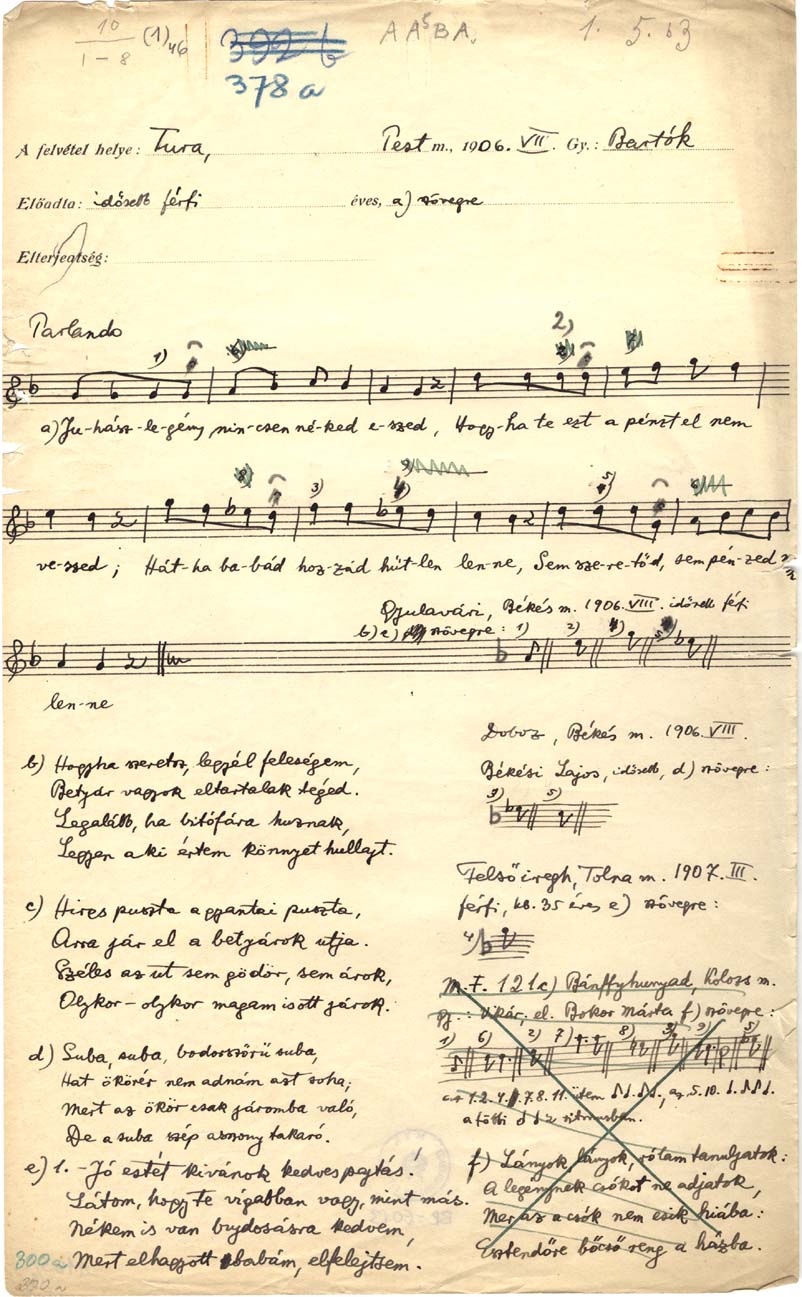 10
1-8 (1) 46
392 b
378 a
A A⁵ B A.
1. 5. b3
A felvétel helye: Tura, Pest m., 1906. VII. Gy.: Bartók
Előadta: idősebb férfi éves, a) szövegre
Elterjedtség:
Parlando
1) 2)
a) Ju-hász-le-gény nin-csen né-ked e-szed, Hogy-ha te ezt a pénzt el nem
3) 4) 5)
ve-szed; Hát-ha ba-bád hoz-zád hüt-len len-ne, Sem sze-re-tőd, sem pén-zed
Gyulavári, Békés m. 1906. VIII. idősebb férfi
b) c) szövegre: 1) 2) 4) 5)
len-ne
b) Hogyha szeretsz, legyél feleségem,
Betyár vagyok eltartalak téged.
Legalább, ha bitófára husznak,
Legyen a ki értem könnyet hullajt.
c) Hires puszta a gyantai puszta,
Arra jár el a betyárok utja.
Széles az ut sem gödör, sem árok,
Olykor-olykor magam is ott járok.
d) Suba, suba, bodorszőrű suba,
Hat ökörér nem adnám azt soha;
Mert az ökör csak járomba való,
De a suba szép asszony takaró.
e) 1. - Jó estét kivánok kedves pajtás!
Látom, hogy te vigabban vagy, mint más.
Nékem is van bujdosásra kedvem,
300a Mert elhagyott babám, elfelejtsem.
Doboz, Békés m. 1906. VIII.
Békési Lajos, idősebb, d) szövegre:
3) 5)
Felsőiregh, Tolna m. 1907. III.
férfi, kb. 35 éves e) szövegre:
4)
M.F. 121c) Bánffyhunyad, Kolozs m.
gy.: Vikár, el. Bokor Márta f) szövegre:
1) 6) 2) 7) 8) 3) 9) 5)
az 1. 2. 4. 7. 8. 11. ütem , az 5. 10.
a többi ritmusban.
f) Lányok, lányok, rólam tanuljatok:
A legénynek csókot ne adjatok,
Mer az a csók nem esik hiába:
Esztendőre bőcső reng a házba.